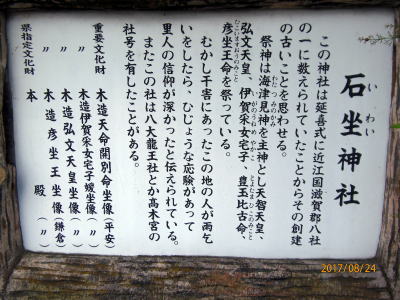 石坐神社
いわい
この神社は延喜式に近江国滋賀郡八社
の一に数えられていたことからその創建
の古いことを思わせる。
祭神は海津見神を主神とし天智天皇、
わたつみのかみ
弘文天皇、伊賀采女宅子、豊玉比古命、
いがのうねめやかこ
とよたまひこのみこと
彦坐王命を祭っている。
ひこいますおうのみこと
むかし干害にあったこの地の人が雨乞
いをしたら、ひじょうな応験があって
里人の信仰が深かったと伝えられている。
またこの社は八大龍王社とか高木宮の
社号を有したことがある。
重要文化財 木造天命開別命坐像(平安)
〃 木造伊賀采女宅子媛坐像(〃)
〃 木造弘文天皇坐像(〃)
〃 木造彦坐王坐像(鎌倉)
県指定文化財 本殿(〃)
2017/08/24